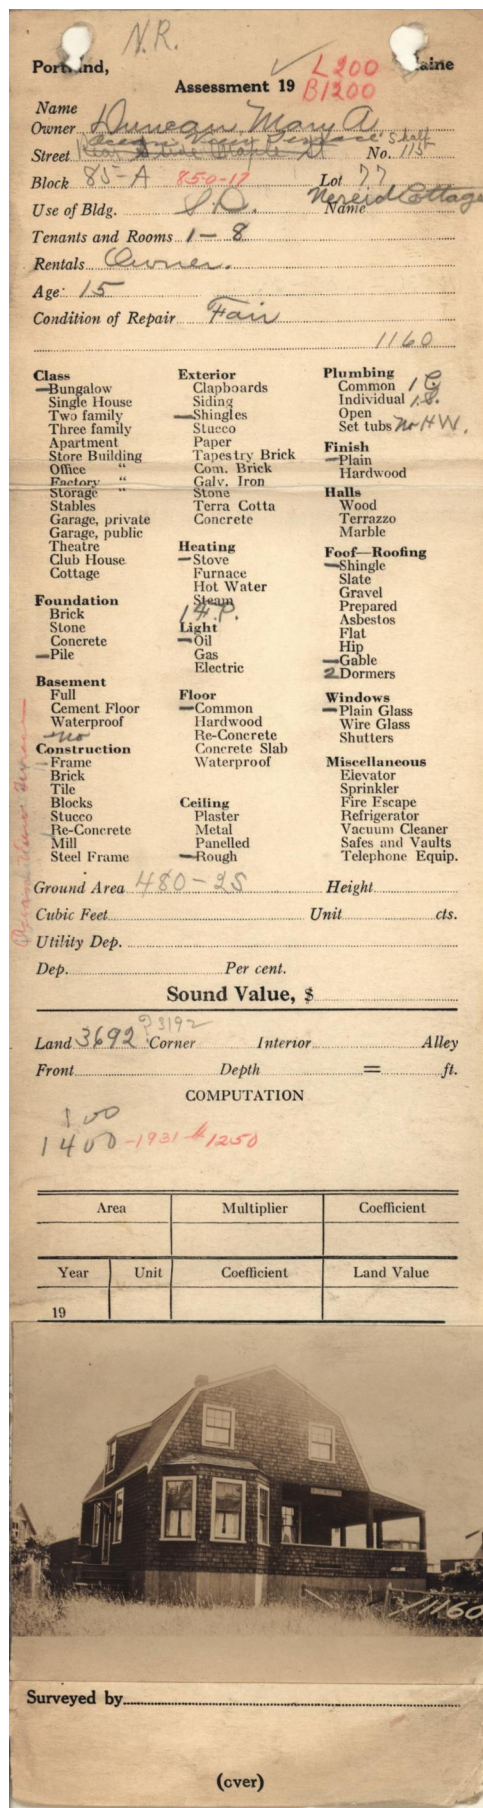 N.R.
Portland, Maine
L200
Assessment 19 B1200
Name
Owner Duncan Mary A.
Ocean View Terrace S half
Street Rear S side Maple St No. 115
Block 85-A 850-17 Lot 77
Use of Bldg. S.D. Name Nereid Cottage
Tenants and Rooms 1-8
Rentals Owner.
Age 15
Condition of Repair Fair
1160
Class
Bungalow
Single House
Two family
Three family
Apartment
Store Building
Office "
Factory "
Storage "
Stables
Garage, private
Garage, public
Theatre
Club House
Cottage
Foundation
Brick
Stone
Concrete
Pile
Basement
Full
Cement Floor
Waterproof
no
Construction
Frame
Brick
Tile
Blocks
Stucco
Re-Concrete
Mill
Steel Frame
Exterior
Clapboards
Siding
Shingles
Stucco
Paper
Tapestry Brick
Com. Brick
Galv. Iron
Stone
Terra Cotta
Concrete
Heating
Stove
Furnace
Hot Water
Steam
1 F.P.
Light
Oil
Gas
Electric
Floor
Common
Hardwood
Re-Concrete
Concrete Slab
Waterproof
Ceiling
Plaster
Metal
Panelled
Rough
Plumbing
Common 1 C
Individual 1 S.
Open
Set tubs no H.W.
Finish
Plain
Hardwood
Halls
Wood
Terrazzo
Marble
Foof—Roofing
Shingle
Slate
Gravel
Prepared
Asbestos
Flat
Hip
Gable
2 Dormers
Windows
Plain Glass
Wire Glass
Shutters
Miscellaneous
Elevator
Sprinkler
Fire Escape
Refrigerator
Vacuum Cleaner
Safes and Vaults
Telephone Equip.
Ocean View Terrace
Ground Area 480-2S Height
Cubic Feet Unit cts.
Utility Dep.
Dep. Per cent.
Sound Value, $
?3192
Land 3692 Corner Interior Alley
Front Depth = ft.
COMPUTATION
100
1400 -1931 $1250
Area Multiplier Coefficient
Year Unit Coefficient Land Value
19
1160
Surveyed by
(over)